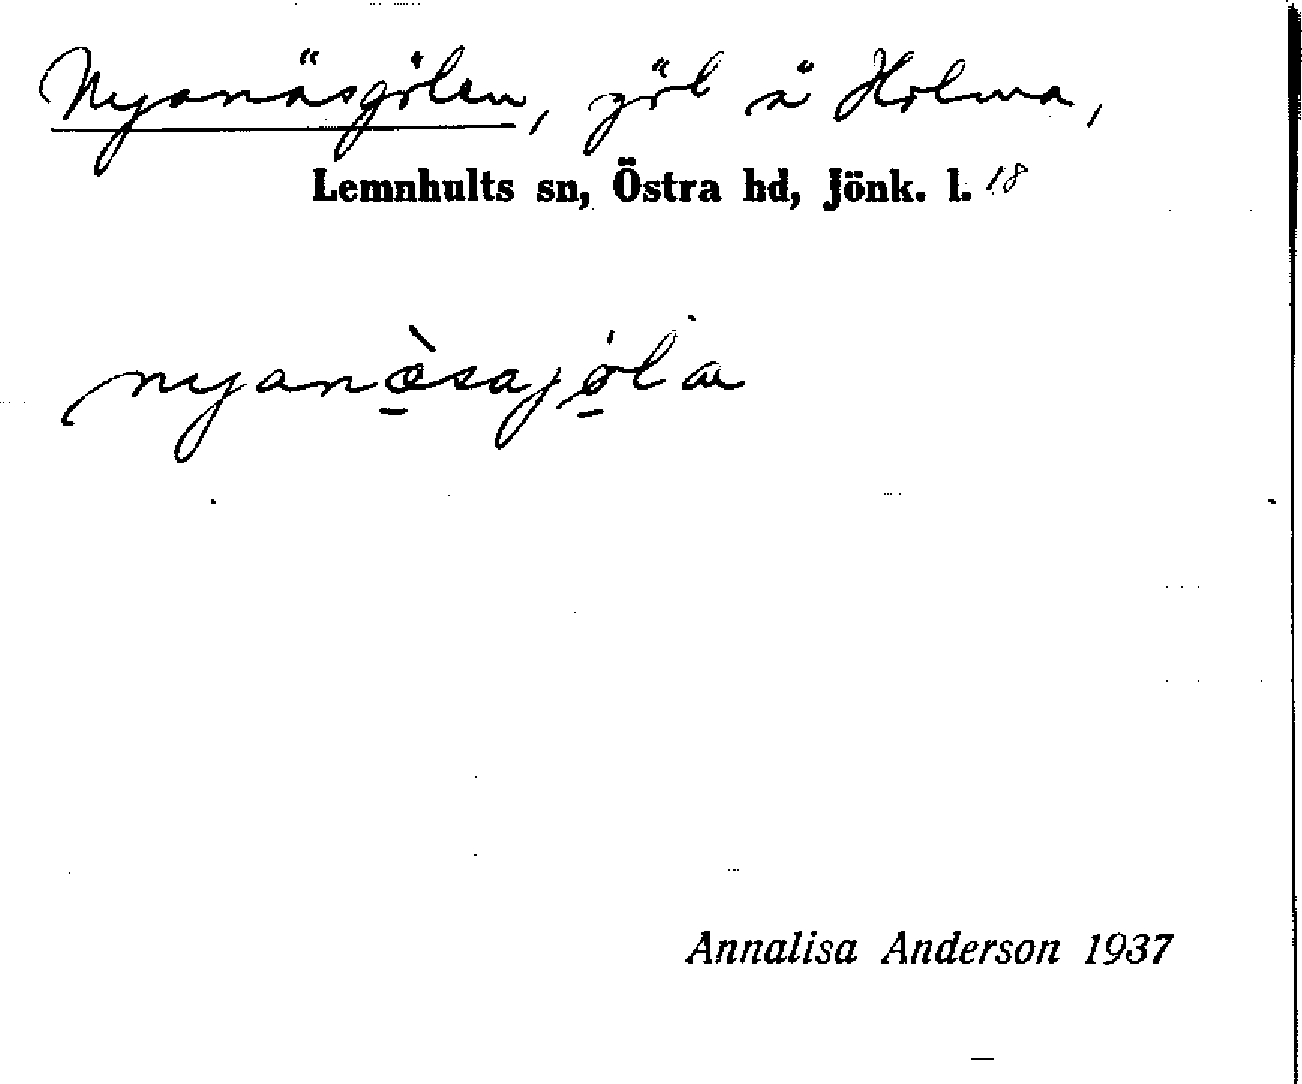 Nyanäsgölen, göl å Holma,
Lemnhults sn, Östra hd, Jönk. l. 18
nyanæ̠̀sajǿ̠la
Annalisa Anderson 1937